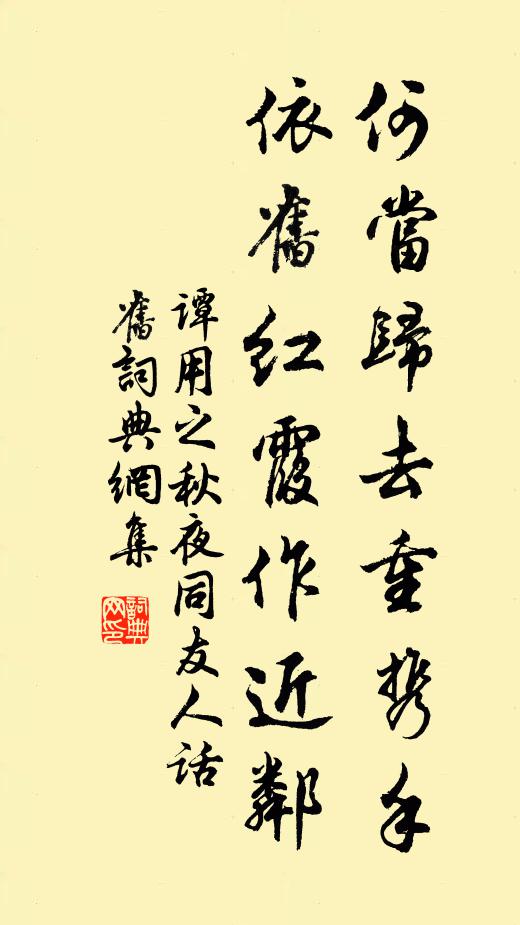 何當歸去重携手
依舊紅霞作近鄰
譚用之秋夜同友人話
舊詞典網集
詞典网印